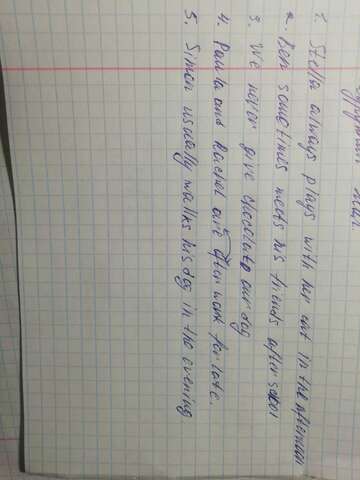 1. Stella always plays with her cat in the afternoon
2. Ben sometimes meets his friends after school
3. We never give chocolate our dog
4. Paula and Rachel are often work for late.
5. Simon usually wallks his dog in the evening